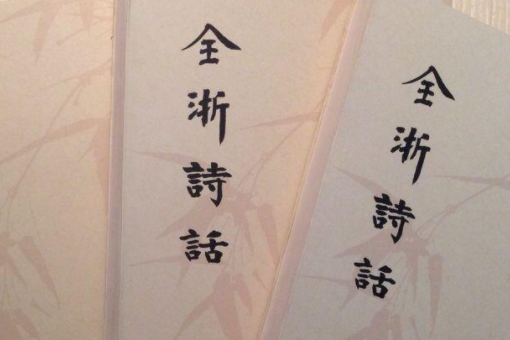 全浙詩話
全浙詩話